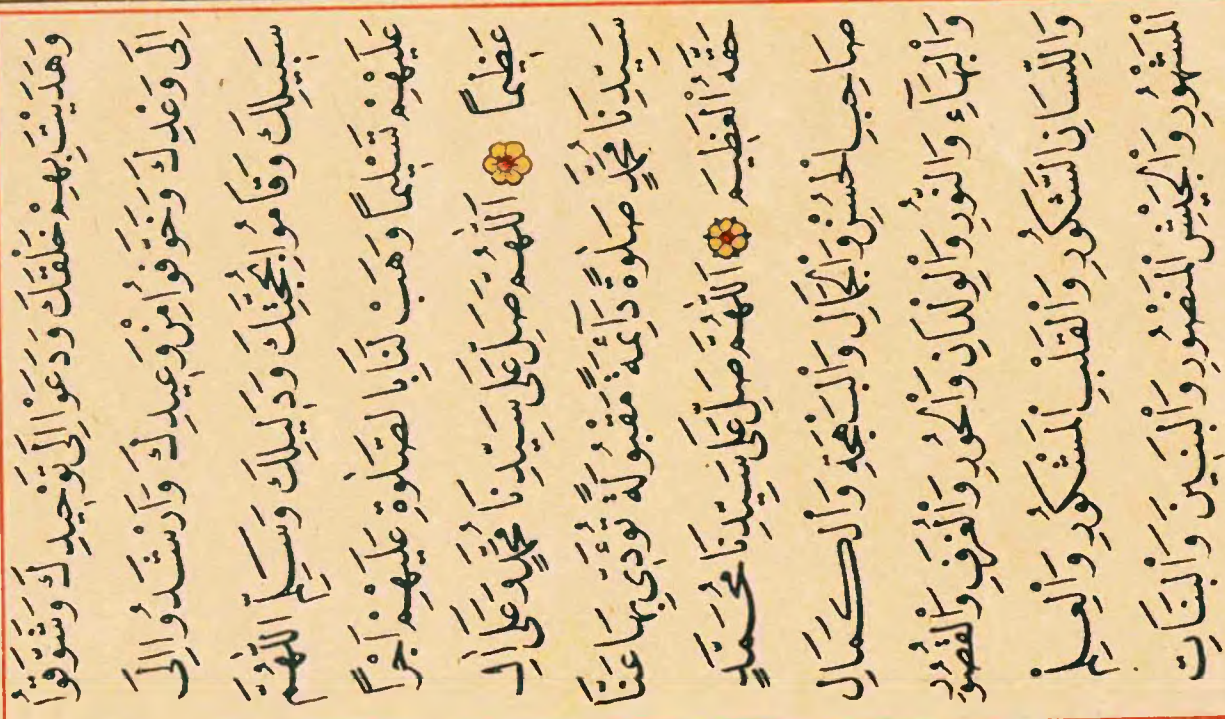 وَهَدَيْتَ بِهِمْ خَلْقَكَ وَدَعَوْا اِلَى تَوْحِيدِكَ وَشَوَّقُوْا
اِلَى وَعْدِكَ وَخَوَّفُوا مِنْ وَعِيدِكَ وَاَرْشَدُوا اِلَى
سَبِيلِكَ وَقَامُوا بِحُجَّتِكَ وَدَلِيلِكَ وَسَلِّمِ اللّٰهُمَّ
عَلَيْهِمْ تَسْلِيمًا وَهَبْ لَنَا بِالصَّلٰوةِ عَلَيْهِمْ اَجْرًا
عَظِيمًا اَللّٰهُمَّ صَلِّ عَلَى سَيِّدِنَا مُحَمَّدٍ وَعَلَى اٰلِ
سَيِّدِنَا مُحَمَّدٍ صَلٰوةً دَائِمَةً مَقْبُولَةً تُؤَدِّى بِهَا عَنَّا
حَقَّهُ الْعَظِيمَ اَللّٰهُمَّ صَلِّ عَلَى سَيِّدِنَا مُحَمَّدٍ
صَاحِبِ الْحُسْنِ وَالْجَمَالِ وَالْبَهْجَةِ وَالْكَمَالِ
وَالْبَهَاءِ وَالنُّورِ وَالْوِلْدَانِ وَالْحُورِ وَالْغُرَفِ وَالْقُصُورِ
وَاللِّسَانِ الشَّكُورِ وَالْقَلْبِ الْمَشْكُورِ وَالْعِلْمِ
الْمَشْهُورِ وَالْجَيْشِ الْمَنْصُورِ وَالْبَنِينَ وَالْبَنَاتِ